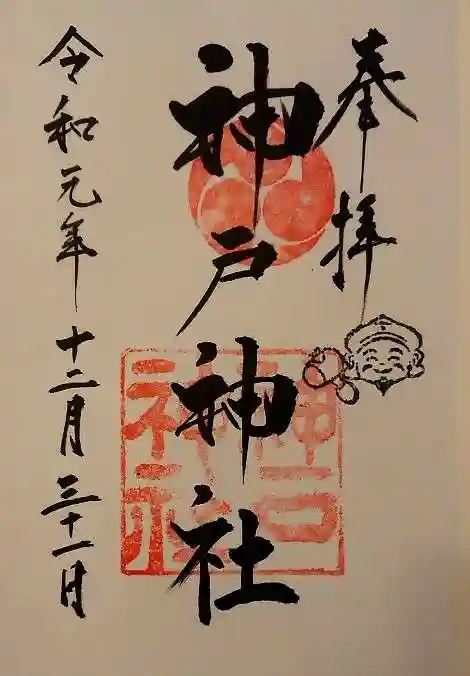 奉拝
神戸神社
神戸神社
令和元年十二月三十一日